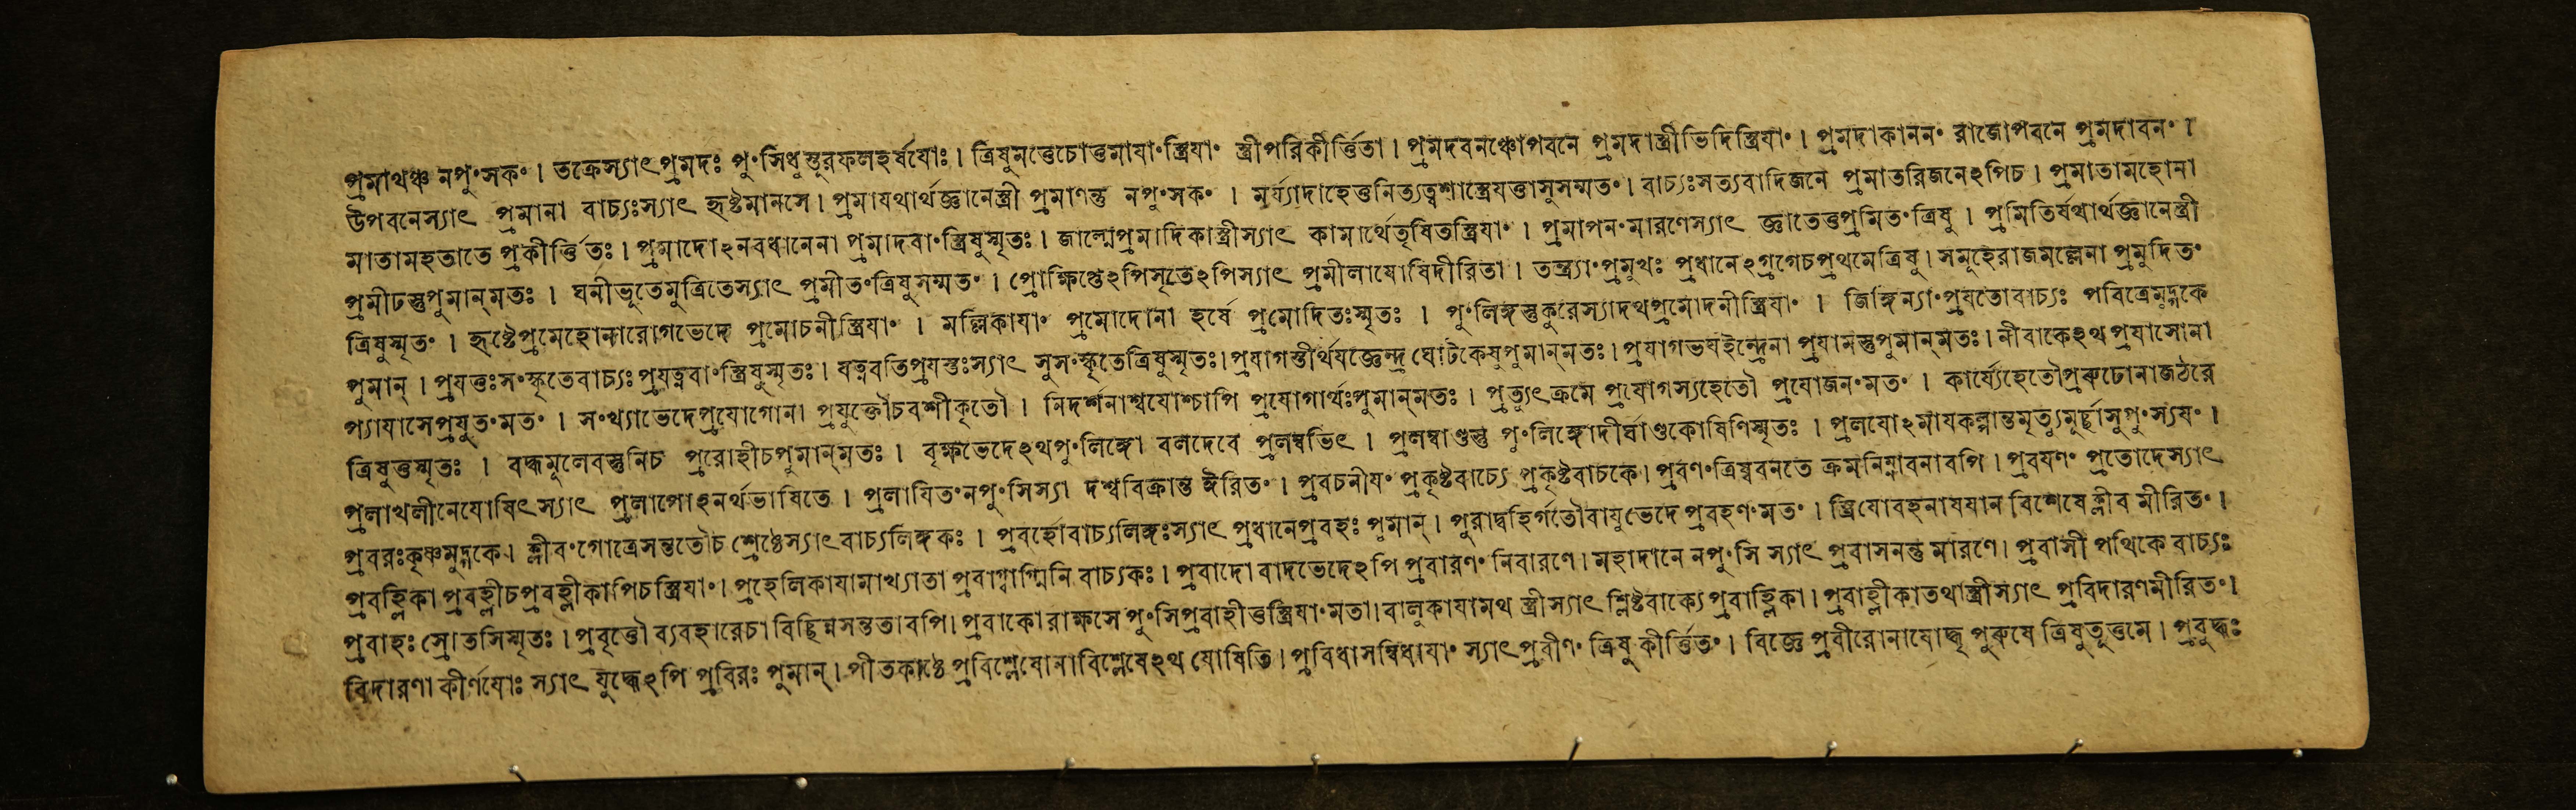 প্রমাথঞ্চ নপুংসকং। তক্রেস্যাৎপ্রমদঃ পুংসিধুস্তূরফলহর্ষযোঃ। ত্রিষুমত্তেচোত্তমাযাংস্ত্রিযাং স্ত্রীপরিকীর্ত্তিতা। প্রমদবনঞ্চোপবনে প্রমদাস্ত্রীভিদিস্ত্রিযাং। প্রমদাকাননং রাজোপবনে প্রমদাবনং।
উপবনেস্যাৎ প্রমানা বাচ্যঃস্যাৎ হৃষ্টমানসে। প্রমাযথার্থজ্ঞানেস্ত্রী প্রমাণন্তু নপুংসকং। মর্য্যাদাহেত্তনিত্যত্বশাস্ত্রেযত্তাসুসম্মতং। বাচ্যঃসত্যবাদিজনে প্রমাতরিজনেঽপিচ। প্রমাতামহোনা
মাতামহতাতে প্রকীর্ত্তিতঃ। প্রমাদোঽনবধানেনা প্রমাদবাংস্ত্রিষুস্মৃতঃ। জাল্মেপ্রমাদিকাস্ত্রীস্যাৎ কামার্থেতৃষিতস্ত্রিযাং। প্রমাপনংমারণেস্যাৎ জ্ঞাতেত্তপ্রমিতংত্রিষু। প্রমিতির্যথার্থজ্ঞানেস্ত্রী
প্রমীঢস্তুপুমান্মতঃ। ঘনীভূতেমুত্রিতেস্যাৎ প্রমীতংত্রিষুসম্মতং। প্রোক্ষিপ্তেঽপিসৃতেঽপিস্যাৎ প্রমীলাযোষিদীরিতা। তন্ত্র্যাংপ্রমুখঃ প্রধানেঽগ্রগেচপ্রথমেত্রিষু। সমূহেরাজমল্লেনা প্রমুদিতং
ত্রিষুস্মৃতং। হৃষ্টেপ্রমেহোনারোগভেদে প্রমোচনীস্ত্রিযাং। মল্লিকাযাং প্রমোদোনা হর্ষে প্রমোদিতঃস্মৃতঃ। পুংলিঙ্গস্তুকুরেস্যাদথপ্রমোদনীস্ত্রিযাং। জিঙ্গিন্যাংপ্রযতোবাচ্যঃ পবিত্রেমুদ্গকে
পুমান্। প্রযত্তঃসংস্কৃতেবাচ্যঃপ্রযত্নবাংস্ত্রিষুস্মৃতঃ। যত্নবতিপ্রযস্তঃস্যাৎ সুসংস্কৃতেত্রিষুস্মৃতঃ। প্রযাগস্তীর্থযজ্ঞেন্দ্র ঘোটকেষুপুমান্মতঃ। প্রযাগভযইন্দ্রেনা প্রযামস্তুপুমান্মতঃ। নীবাকেঽথপ্রযাসোনা
প্যাযাসেপ্রযুতংমতং। সংখ্যাভেদেপ্রযোগোনা প্রযুক্তৌচবশীকৃতৌ। নিদর্শনাশ্বযোশ্চাপি প্রযোগার্থঃপুমান্মতঃ। প্রত্যুৎক্রমে প্রযোগস্যহেতৌ প্রযোজনংমতং। কার্য্যেহেতৌপ্ররুঢোনাজঠরে
ত্রিষুত্তস্মৃতঃ। বদ্ধমূলেবস্তুনিচ প্ররোহীচপুমান্মতঃ। বৃক্ষভেদেঽথপুংলিঙ্গো বলদেবে প্রলম্বভিৎ। প্রলম্বাণ্ডস্তু পুংলিঙ্গোদীর্ঘাণ্ডকোষিণিস্মৃতঃ। প্রলযোঽমাযকল্পান্তমৃত্যুমুর্চ্ছাসুপুংস্যযং।
প্রলাখলীনেযোষিৎস্যাৎ প্রলাপোঽনর্থভাষিতে। প্রলাযিতংনপুংসিস্যা দশ্ববিক্রান্ত ঈরিতং। প্রবচনীযং প্রকৃষ্টবাচ্যে প্রকৃষ্টবাচকে। প্রবণংত্রিষ্ববনতে ক্রমনিম্নাবনাবপি। প্রবযণং প্রতোদেস্যাৎ
প্রবরঃকৃষ্ণমুদ্গকে। ক্লীবংগোত্রেসন্ততৌচ শ্রেষ্ঠেস্যাৎবাচ্যলিঙ্গকঃ। প্রবর্হোবাচ্যলিঙ্গঃস্যাৎ প্রধানেপ্রবহঃ পুমান্। পুরাদ্বহির্গতৌবাযুভেদে প্রবহণংমতং। স্ত্রিযোবহনাযযান বিশেষেক্লীব মীরিতং।
প্রবহ্লিকা প্রবহ্লীচপ্রবহ্লীকাপিচস্ত্রিযাং। প্রহেলিকাযামাখ্যাতা প্রবাগ্বাগ্মিনি বাচ্যকঃ। প্রবাদো বাদভেদেঽপি প্রবারণং নিবারণে। মহাদানে নপুংসি স্যাৎ প্রবাসনন্তু মারণে। প্রবাসী পথিকে বাচ্যঃ
প্রবাহঃ স্রোতসিস্মৃতঃ। প্রবৃত্তৌ ব্যবহারেচা বিচ্ছিন্নসন্ততাবপি। প্রবাকোরাক্ষসে পুংসিপ্রবাহীত্তস্ত্রিযাংমতা। বালুকাযামথ স্ত্রীস্যাৎ শ্লিষ্টবাক্যেপ্রবাহ্লিকা। প্রবাহ্লীকাতথাস্ত্রীস্যাৎ প্রবিদারণমীরিতং।
বিদারণা কীর্ণযোঃ স্যাৎ যুদ্ধেঽপি প্রবিরঃ পুমান্। পীতকাষ্ঠে প্রবিশ্লেষোনাবিশ্লেষেঽথ যোষিতি। প্রবিধাসন্বিধাযাং স্যাৎপ্রবীণং ত্রিষুকীর্ত্তিতং। বিজ্ঞে প্রবীরোনাযোদ্ধৃ পুরুষে ত্রিষুতূত্তমে। প্রবুদ্ধঃ